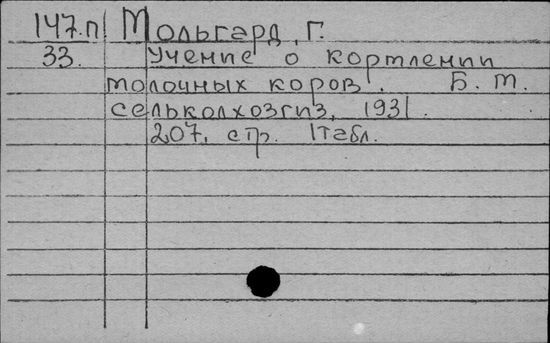 147.п Мольгард, Г.
33. Учение о кортлении
молочных коров. Б. м.
сельколхозгиз, 1931.
207, стр. 1табл.